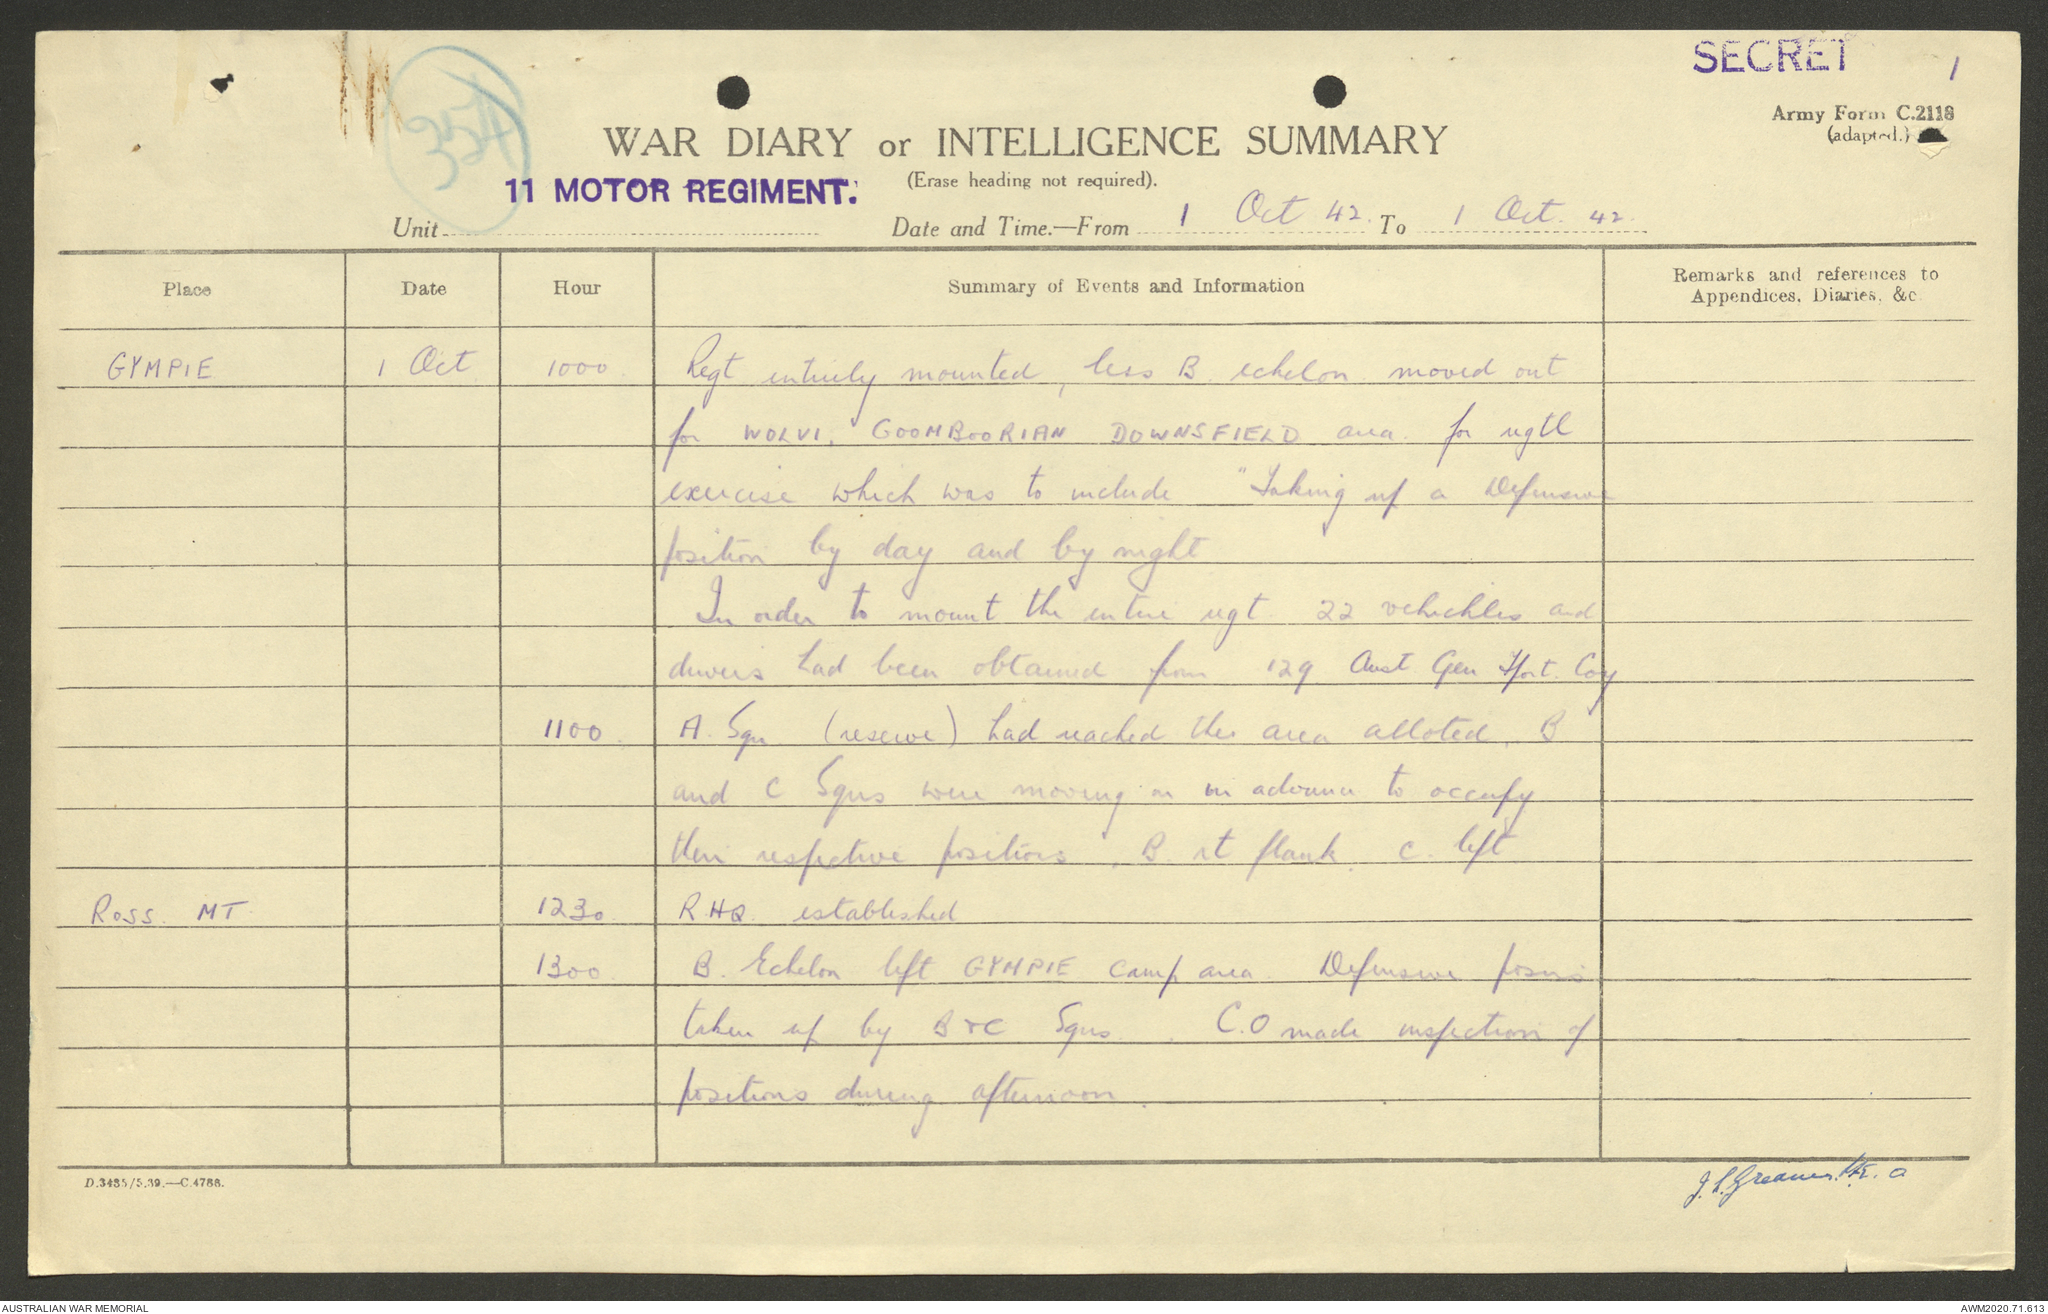 SECRET
1
Army Form C.2118
(adapted.)
WAR DIARY or INTELLIGENCE SUMMARY
(Erase heading not required).
11 MOTOR REGIMENT.
Unit
Date and Time.—From 1 Oct 42. To 1 Oct. 42.
Place Date Hour Summary of Events and Information Remarks and references to
Appendices, Diaries, &c.
GYMPIE 1 Oct 1000 Regt entirely mounted, less B. echelon moved out
for WOLVI, GOOMBOORIAN DOWNSFIELD area for regtl
exercise which was to include "Taking up a Defensive
position by day and by night
In order to mount the entire regt. 22 vehichles and
drivers had been obtained from 129 Aust Gen Tport. Coy
1100 A. Sqn (reserve) had reached the area alloted. B
and C Sqns were moving on in advance to occupy
their respective positions. B. rt flank. C. left
ROSS. MT 1230 R.HQ. established
1300 B. Echelon left GYMPIE camp area. Defensive posns
taken up by B & C Sqns. C.O made inspection of
positions during afternoon.
D.3485/5.39.—C.4788.
J.L. Greaves
AUSTRALIAN WAR MEMORIAL
AWM2020.71.613